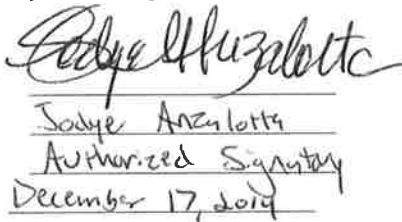 Jodye Anzalotta
Jodye Anzalotta
Authorized Signatory
December 17, 2019